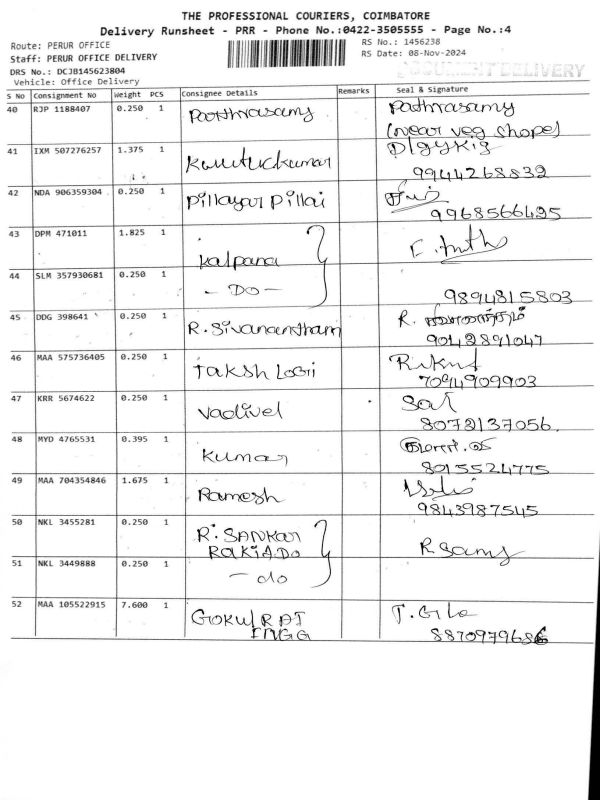 THE PROFESSIONAL COURIERS, COIMBATORE
Delivery Runsheet - PRR - Phone No.:0422-3505555 - Page No.:4
Route: PERUR OFFICE
RS No.: 1456238
Staff: PERUR OFFICE DELIVERY
RS Date: 08-Nov-2024
DRS No.: DCJB145623804
DOCUMENT DELIVERY
Vehicle: Office Delivery
S No Consignment No Weight PCS Consignee Details Remarks Seal & Signature
40 RJP 1188407 0.250 1 Parthasamy Pathrasamy
(near veg shope)
41 IXM 507276257 1.375 1
9944268832
42 NDA 906359304 0.250 1 Pillayar Pillai
9968566495
43 DPM 471011 1.825 1 Kalpana
44 SLM 357930681 0.250 1 - DO - 9894815803
45 DDG 398641 0.250 1 R. Sivanantham R. சிவானந்தம்
9042891047
46 MAA 575736405 0.250 1 Taksh Logii
7094909903
47 KRR 5674622 0.250 1 Vadivel
8072137056.
48 MYD 4765531 0.395 1 Kumar
8015524775
49 MAA 704354846 1.675 1 Ramesh
9843987545
50 NKL 3455281 0.250 1 R. SANKAR R Samy
51 NKL 3449888 0.250 1 - do
52 MAA 105522915 7.600 1 GOKULRAJ
ENGG 8870979686